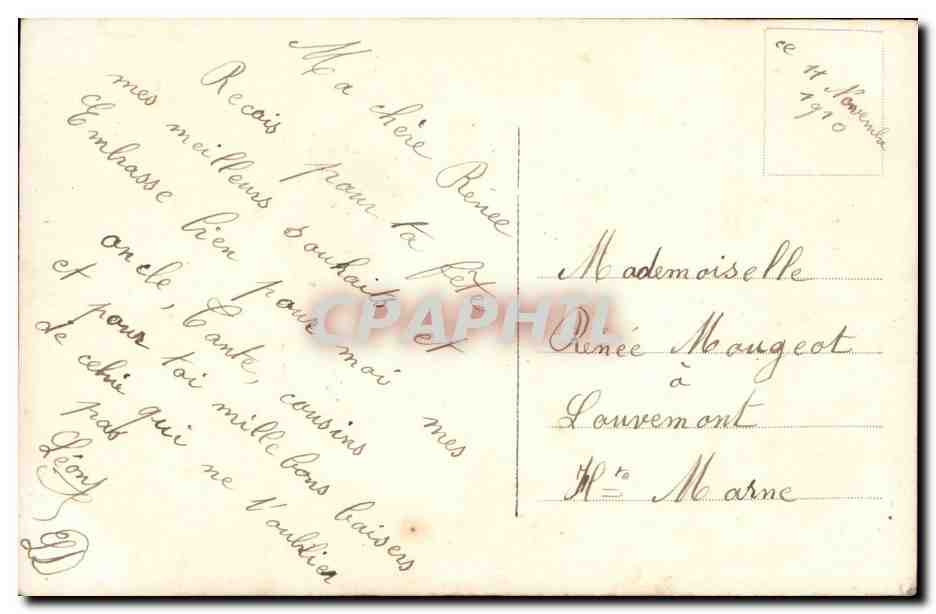 Ma chère Renée
Recois pour ta fête
mes meilleurs souhaits et
Embrasse bien pour moi mes
oncle, Tante, cousins
et pour toi mille bons baisers
de celui qui ne t'oublier
pas
Léon
LD
ce 11 Novembre
1910
Mademoiselle
Rénée Mougeot
à
Louvemont
Hte Marne
CPAPHIL